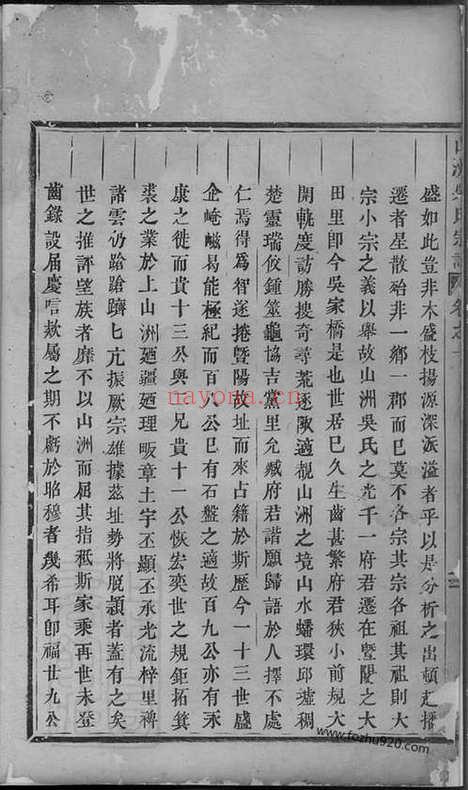 山洲吳氏宗譜 卷之一
盛如此豈非木盛枝揚源深派溢者乎以是分析之出頓起播
遷者星散殆非一鄉一郡而已莫不各宗其宗各祖其祖則大
宗小宗之義以舉故山洲吳氏之光千一府君遷在暨陽之大
田里即今吳家橋是也世居已久生齒甚繁府君狹小前規大
開軌度訪勝搜奇尋荒逐陬適覩山洲之境山水蟠環邱墟稠
楚靈瑞佼鍾筮龜協吉黨里允臧府君諧願歸語於人擇不處
仁焉得爲智遂捲暨陽故址而來占籍於斯歷今一十三世盛
企崦嵫易能極紀而百一公巳有石盤之適故百九公亦有汞
康之徙而貴十三公與兄貴十一公恢宏奕世之規鉅拓箕
裘之業於上山洲廼疆廼理畈章土宇丕顯丕承光流梓里禆
諸雲仍蹌蹌躋七亢振厥宗雄據茲址勢將脫穎者蓋有之矣
世之推評望族者靡不以山洲而屈其指秪斯家乘再世未登
齒錄設届慶唁欵屬之期不虧於昭穆者幾希耳卽福廿九公
nayona.cn
www.fozhu920.com